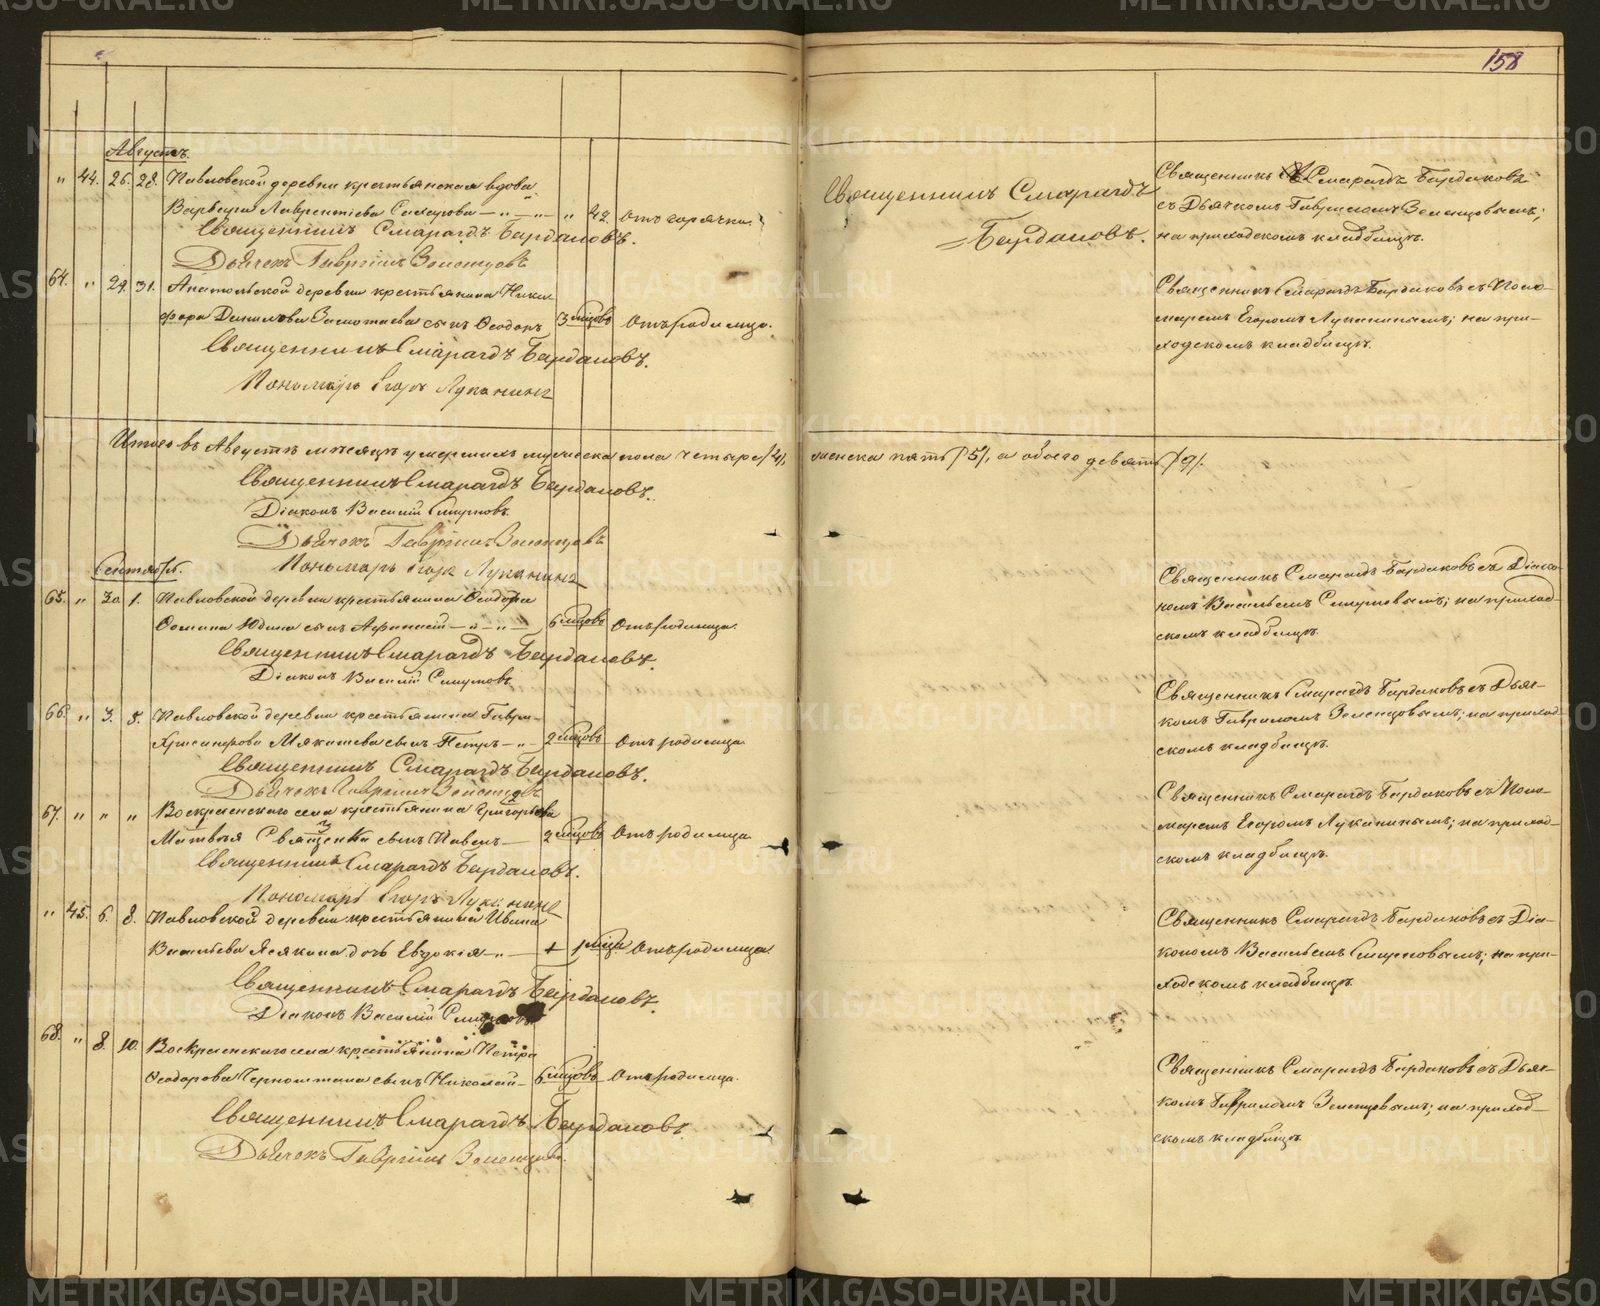 158
Августъ.
" 44. 26. 28. Павловской деревни крестьянская вдова
Варвара Лаврентiева Сахарова — " — " — " 42. отъ горячки.
Священникъ Смарагдъ Бардаковъ.
Дьячокъ Гаврiилъ Зеленцовъ
Священникъ Смарагдъ
Бардаковъ.
Священникъ Смарагдъ Бардаковъ
съ Дьячкомъ Гавриломъ Зеленцовымъ;
на приходскомъ кладбищѣ.
64. " 29. 31. Анатольской деревни крестьянина Ники-
фора Данилова сынъ Ѳеодоръ 3 мѣсцовъ Отъ родимца.
Священникъ Смарагдъ Бардаковъ.
Пономарь Егоръ Луканинъ
Священникъ Смарагдъ Бардаковъ съ Поно-
маремъ Егоромъ Луканинымъ; на при-
ходскомъ кладбищѣ.
Итого въ Августѣ мѣсяцѣ умершихъ мужеска пола четыре /4/, женска пять /5/, а обоего девять /9/.
Священникъ Смарагдъ Бардаковъ.
Дiаконъ Василiй Смирновъ.
Дьячокъ Гаврiилъ Зеленцовъ
Пономарь Егоръ Луканинъ
Сентябрь.
65. " 30 1. Павловской деревни крестьянина Ѳеодора
Юдина сынъ Аѳанасiй — " — " — 6 мѣсцовъ Отъ родимца.
Священникъ Смарагдъ Бардаковъ.
Дiаконъ Василiй Смирновъ
Священникъ Смарагдъ Бардаковъ съ Дiако-
номъ Васильемъ Смирновымъ; на приход-
скомъ кладбищѣ.
66. " 3. 5. Павловской деревни крестьянина Гаври-
сынъ Петръ — " — 2 мѣсцовъ Отъ родимца.
Священникъ Смарагдъ Бардаковъ.
Дьячокъ Гаврiилъ Зеленцовъ
Священникъ Смарагдъ Бардаковъ съ Дьяч-
комъ Гавриломъ Зеленцовымъ; на приход-
скомъ кладбищѣ.
67. " " " Воскресенскаго села крестьянина Григорьева
Матвѣя сынъ Павелъ — 2 мѣсцовъ Отъ родимца
Священникъ Смарагдъ Бардаковъ.
Пономарь Егоръ Луканинъ
Священникъ Смарагдъ Бардаковъ съ Поно-
маремъ Егоромъ Луканинымъ; на приход-
скомъ кладбищѣ.
" 45. 6. 8. Павловской деревни крестьянина Ивана
Васильева дочь Евдокiя — " — 1 мѣсц. Отъ родимца.
Священникъ Смарагдъ Бардаковъ.
Дiаконъ Василiй Смирновъ
Священникъ Смарагдъ Бардаковъ съ Дiа-
кономъ Васильемъ Смирновымъ; на при-
ходскомъ кладбищѣ.
68. " 8. 10. Воскресенскаго села крестьянина Петра
Ѳеодорова сынъ Николай — 6 мѣсцовъ Отъ родимца.
Священникъ Смарагдъ Бардаковъ.
Дьячокъ Гаврiилъ Зеленцовъ.
Священникъ Смарагдъ Бардаковъ съ Дьяч-
комъ Гавриломъ Зеленцовымъ; на приход-
скомъ кладбищѣ.
METRIKI.GASO-URAL.RU